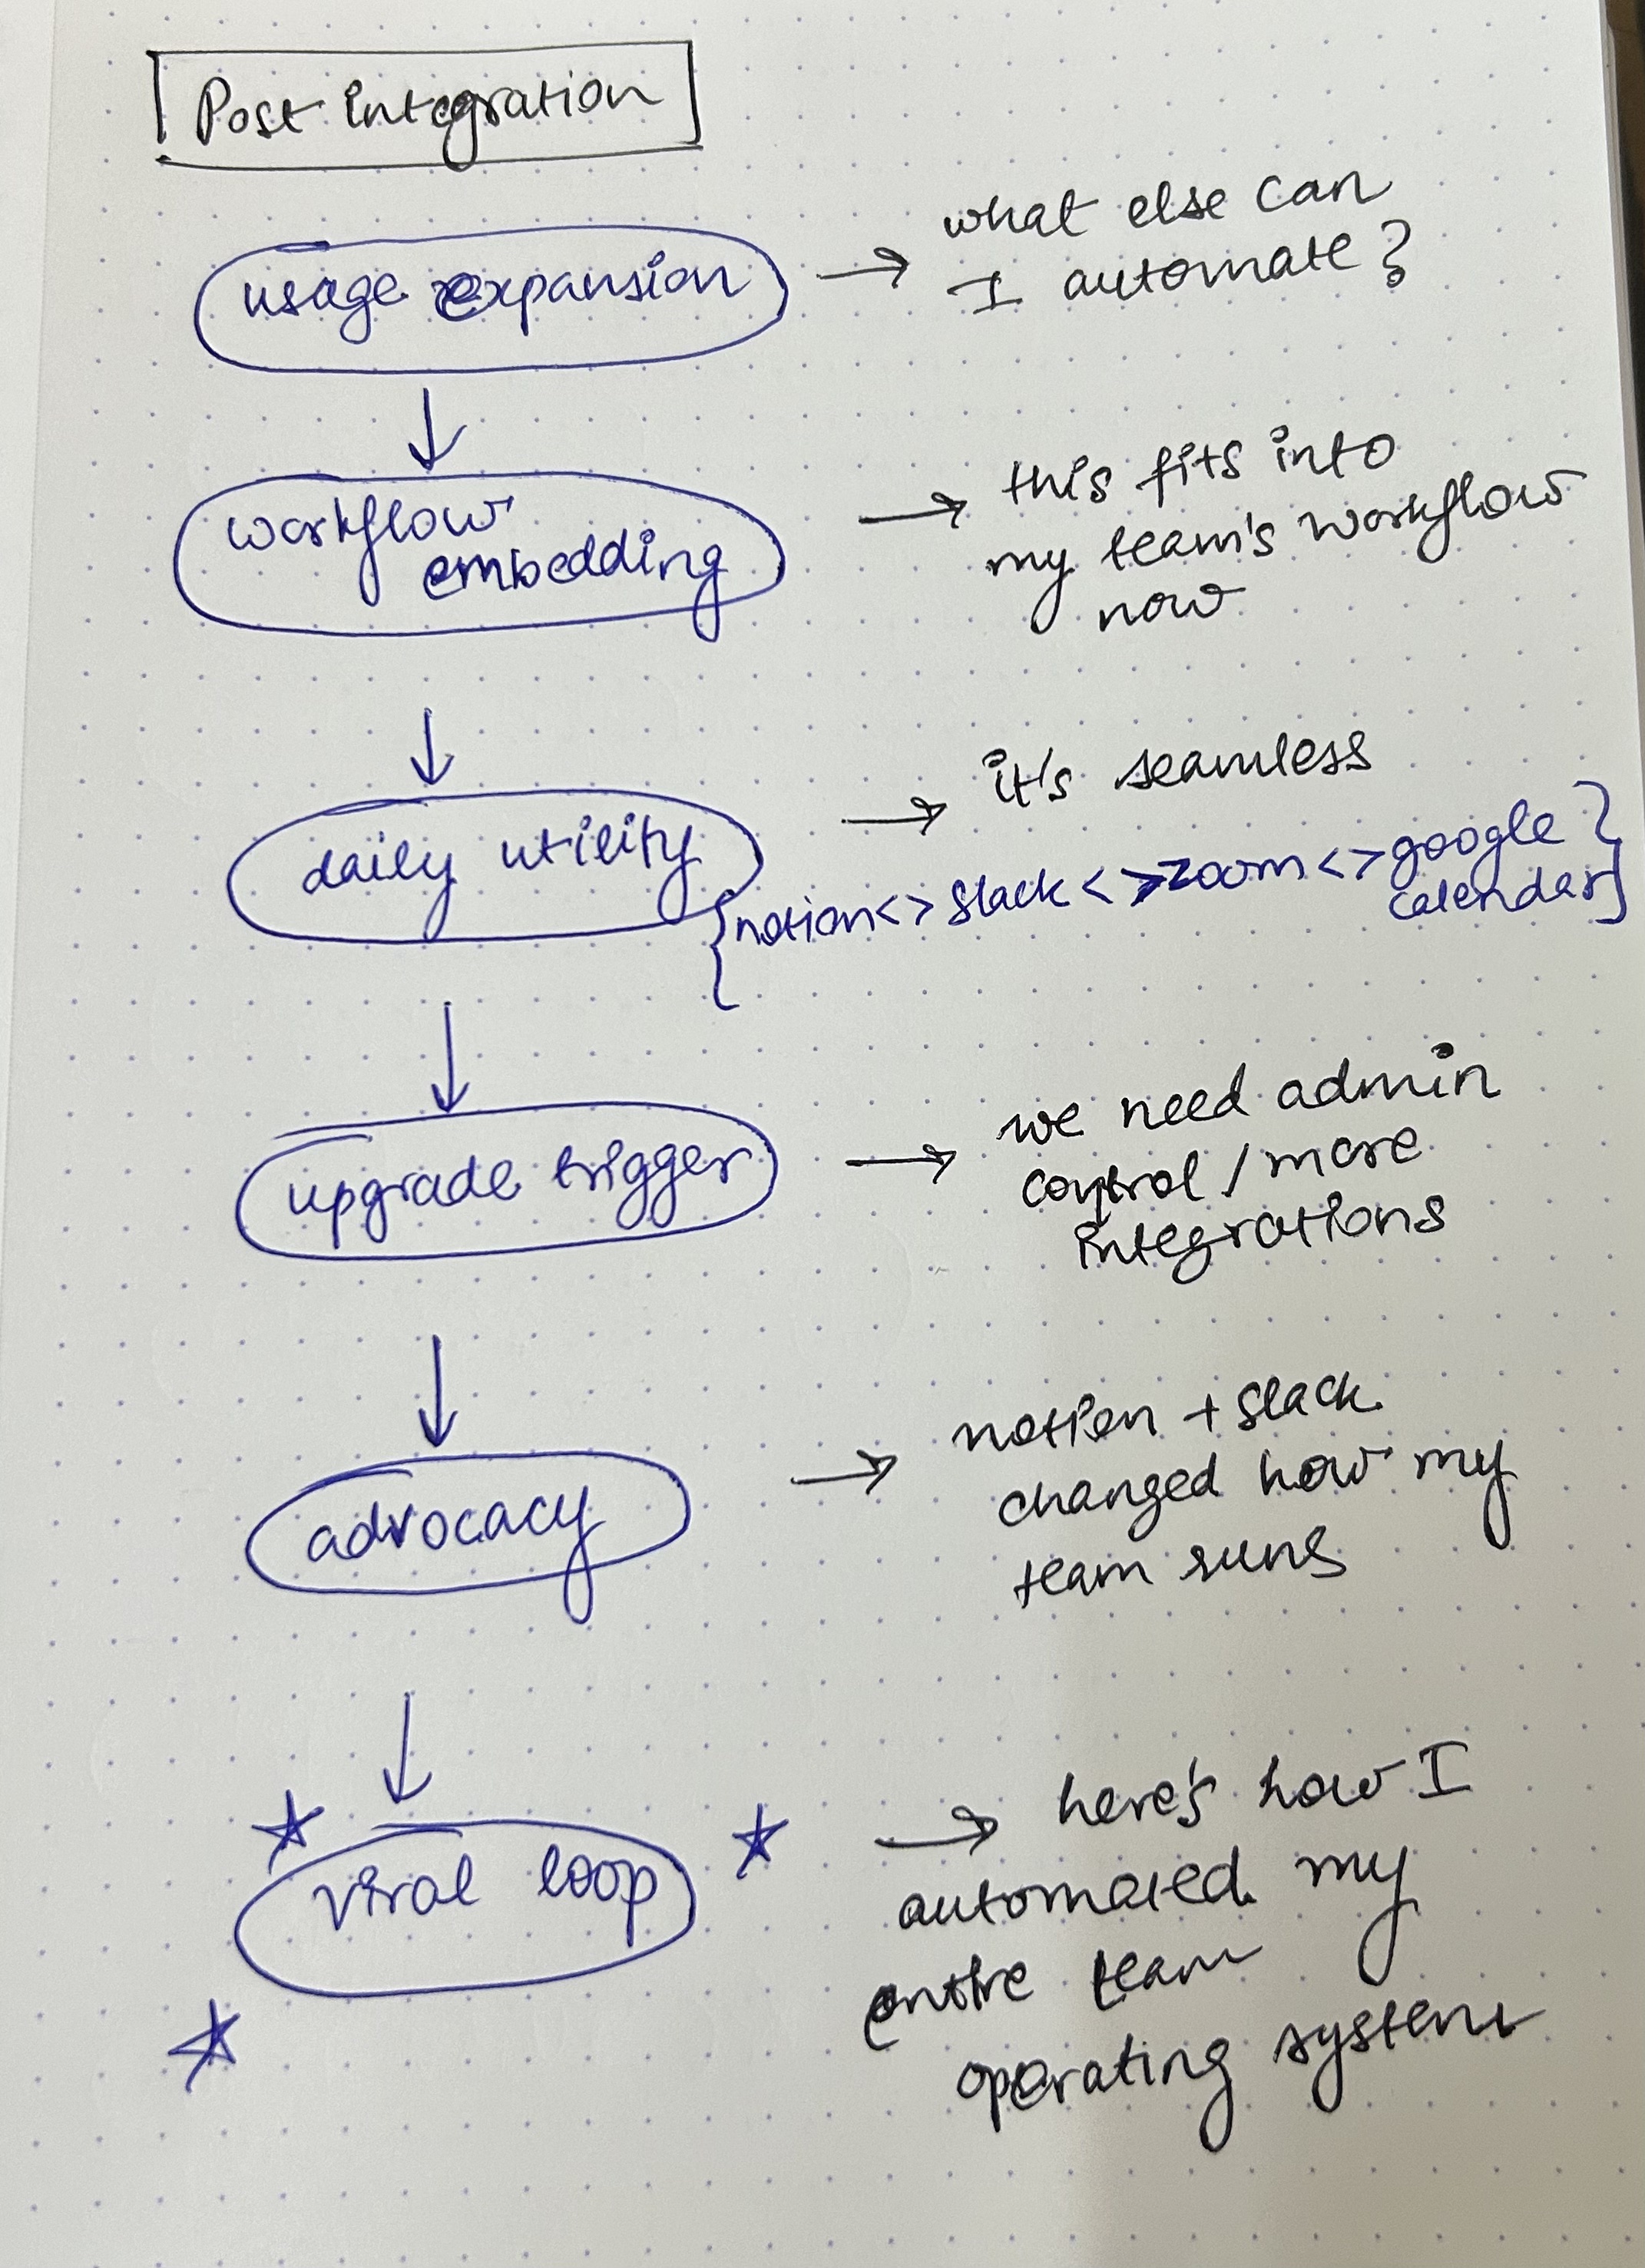 Post integration
usage expansion
what else can
I automate?
workflow
embedding
this fits into
my team's workflow
now
daily utility
it's seamless
{notion<> slack<>zoom<>google}
calendar}
upgrade trigger
we need admin
control/more
integrations
advocacy
notion + slack
changed how my
team runs
viral loop
here's how I
automated my
entire team
operating system